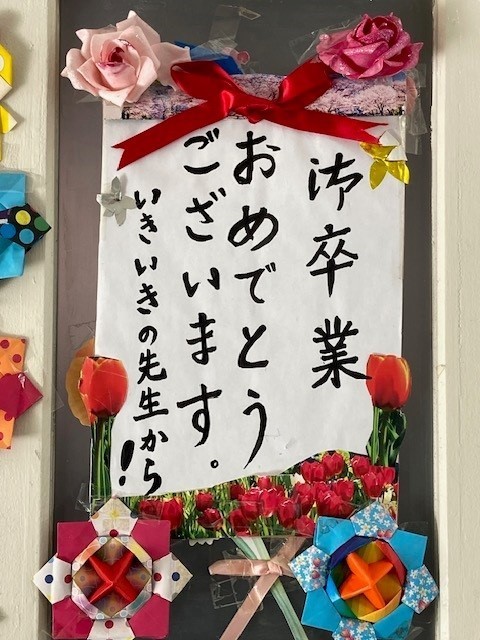 御卒業
おめでとう
ございます。
いきいきの先生から!